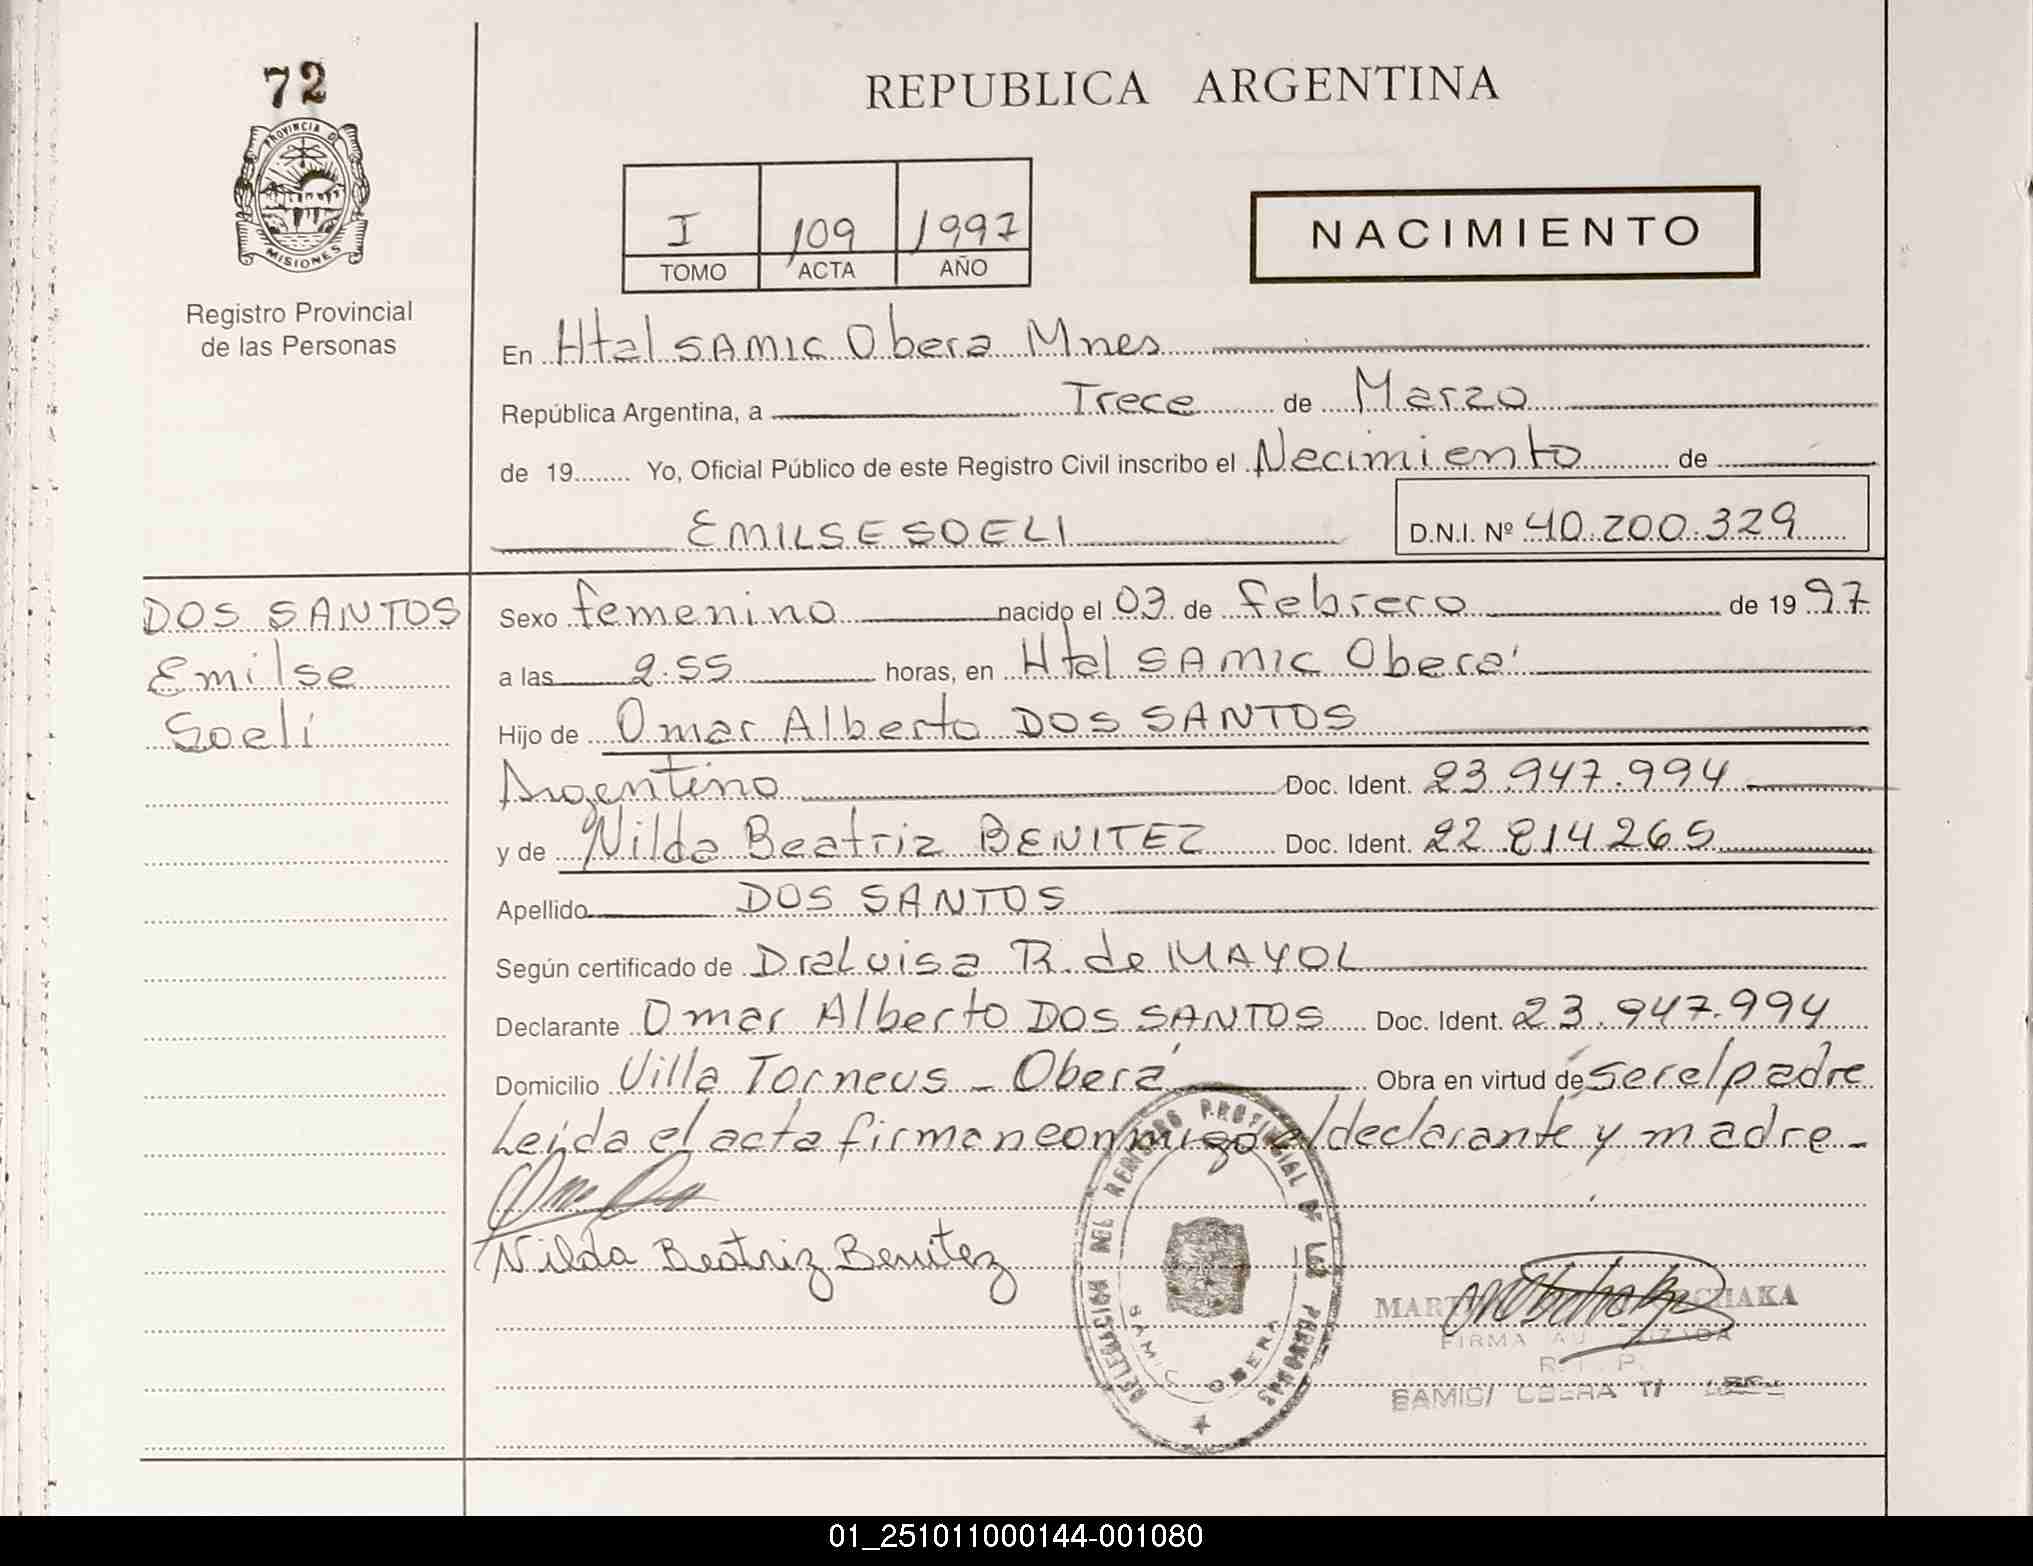 72
REPUBLICA ARGENTINA
PROVINCIA DE
MISIONES
Registro Provincial
de las Personas
I 109 1997
TOMO ACTA AÑO
NACIMIENTO
En Htal SAMIC Obera Mnes
República Argentina, a Trece de Marzo
de 19........ Yo, Oficial Público de este Registro Civil inscribo el Nacimiento de
EMILSE SOELI D.N.I. Nº 40.200.329
DOS SANTOS
Emilse
Soeli
Sexo femenino nacido el 03 de febrero de 1997
a las 2:55 horas, en Htal SAMIC Oberá
Hijo de Omar Alberto DOS SANTOS
Argentino Doc. Ident. 23.947.994
y de Nilda Beatriz BENITEZ Doc. Ident. 22.814265
Apellido DOS SANTOS
Según certificado de Dra Luisa R. de MAYOL
Declarante Omar Alberto DOS SANTOS Doc. Ident. 23.947.994
Domicilio Villa Torneus - Oberá Obra en virtud de ser el padre
Leida el acta firman conmigo el declarante y madre -
Nilda Beatriz Benitez
DELEGACION DEL REGISTRO PROVINCIAL DE LAS PERSONAS
SAMIC OBERA
FIRMA
SAMIC/ OBERA
01_251011000144-001080